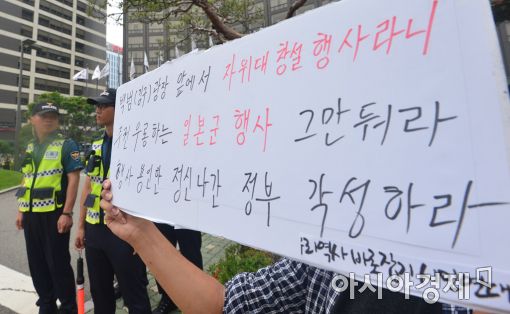 백범(김구)광장 앞에서 자위대 창설 행사라니
우롱하는 일본군 행사 그만 둬라
행사 용인한 정신나간 정부 각성하라
역사 바로
아시아경제